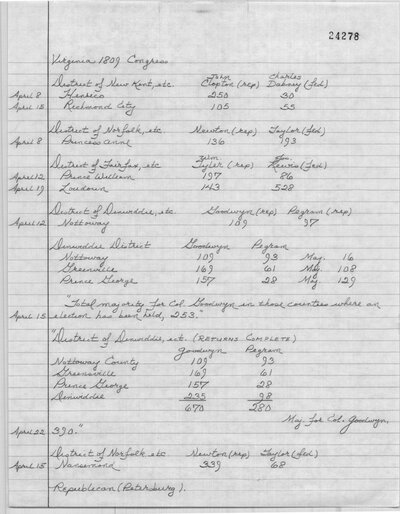 24278
Virginia 1809 Congress
John Charles
District of New Kent, etc. Clopton (rep) Dabney (fed)
April 8 Henrico 250 30
April 15 Richmond City 105 55
District of Norfolk, etc. Newton (rep) Taylor (fed)
April 8 Princess Anne 136 193
District of Fairfax, etc Tyler (rep) Lewis (fed)
April 12 Prince William 197 86
April 19 Loudoun 143 528
District of Dinwiddie, etc. Goodwyn (rep) Pegram (rep)
April 12 Nottoway 109 97
Dinwiddie District Goodwyn Pegram
Nottoway 109 93 Maj. 16
Greensville 169 61 Maj. 108
Prince George 157 28 Maj. 129
"Total majority for Col. Goodwyn in those counties where an
April 15 election has been held, 253."
"District of Dinwiddie, etc. (RETURNS COMPLETE)
Goodwyn Pegram
Nottoway County 109 93
Greensville 169 61
Prince George 157 28
Dinwiddie 235 98
670 280
Maj. for Col. Goodwyn,
April 22 390."
District of Norfolk etc Newton (rep) Taylor (fed)
April 15 Nansemond 339 68
Republican (Petersburg).